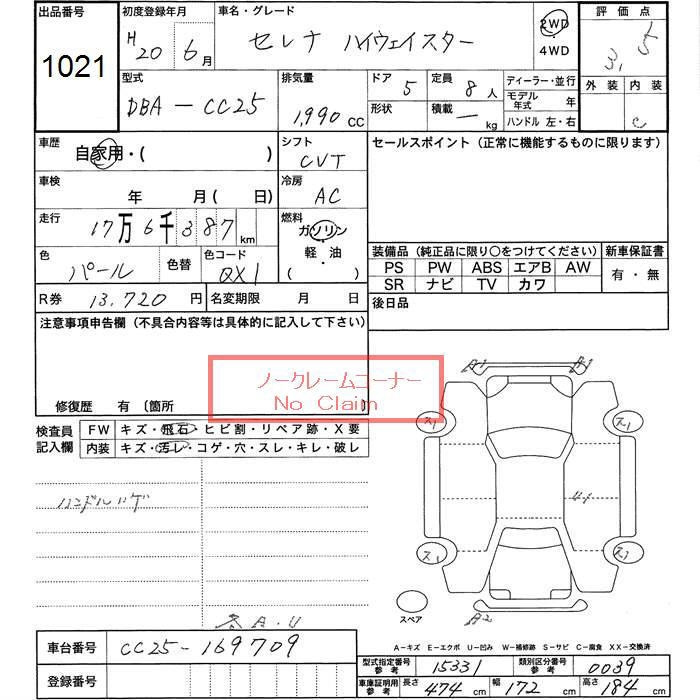 出品番号
1021
初度登録年月
H 20 6月
車名・グレード
セレナ ハイウェイスター
2WD
・
4WD
評価点
3.5
外装 内装
C
型式
DBA-CC25
排気量
1,990 cc
ドア 5
形状
定員 8人
積載 - kg
ディーラー・並行
モデル年式 年
ハンドル 左・右
車歴
自家用・( )
シフト
CVT
セールスポイント (正常に機能するものに限ります)
車検
年 月 ( 日)
冷房
AC
走行
17万6千387km
燃料
ガソリン
・
軽・油
( )
色
パール
色替
色コード
QX1
装備品 (純正品に限り○をつけてください)
新車保証書
PS PW ABS エアB AW
SR ナビ TV カワ
有・無
R券 13,720円
名変期限 月 日
後日品
注意事項申告欄 (不具合内容等は具体的に記入して下さい)
ノークレームコーナー
No Claim
修復歴 有 〔箇所 〕
検査員記入欄
FW キズ・飛石・ヒビ割・リペア跡・X要
内装 キズ・汚レ・コゲ・穴・スレ・キレ・破レ
ハンドルハゲ
A・U
A-1 A-1
ス1 ス1
U-1
ス1 ス1
スペア
A-2
A-キズ E-エクボ U-凹み W-補修跡 S-サビ C-腐食 XX-交換済
車台番号 CC25-169709
登録番号
型式指定番号 参考 15331 類別区分番号 参考 0039
車庫証明用 参考 長さ 474cm 幅 172cm 高さ 184cm